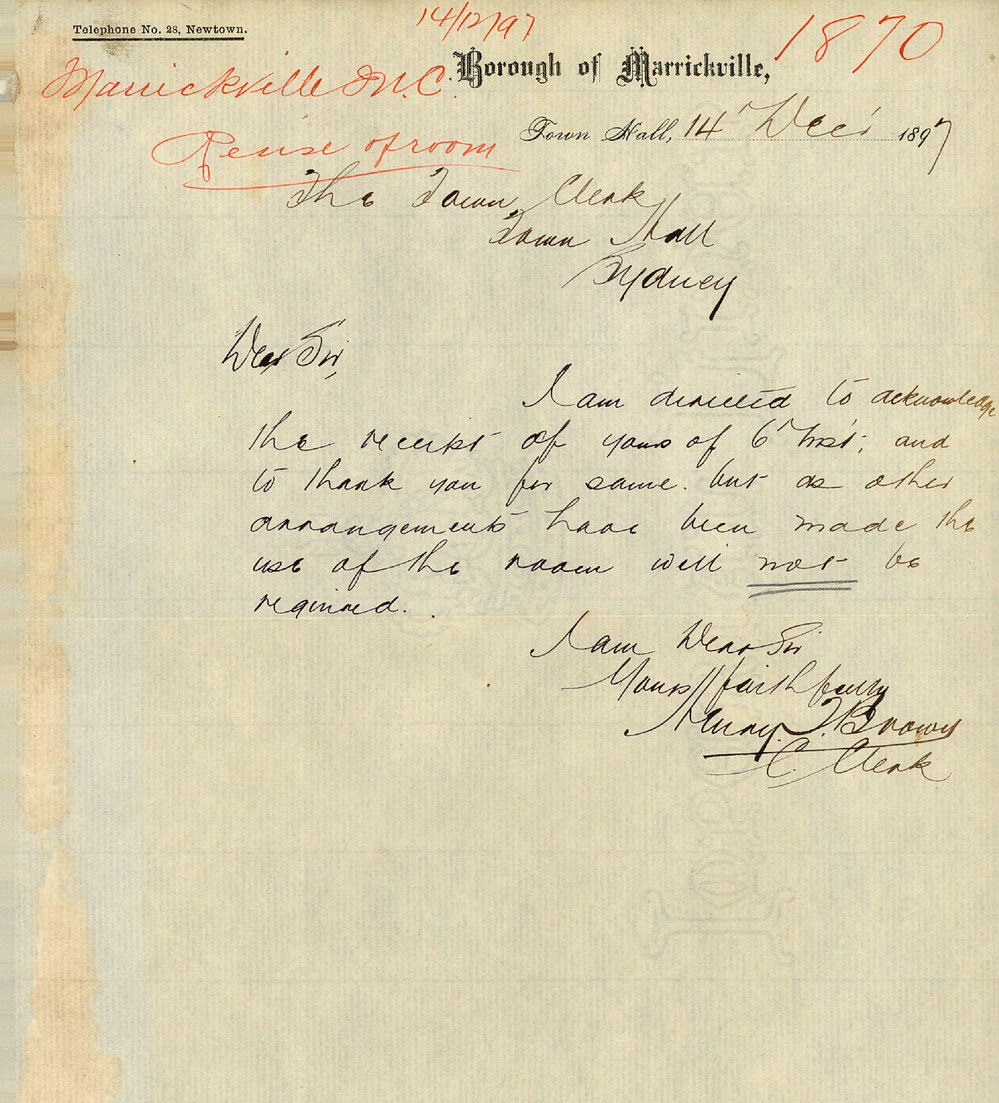 Telephone No. 28, Newtown.
14/12/97
1870
Marrickville M.C.
Borough of Marrickville,
Town Hall, 14 Dec'r 1897
Re use of room
The Town Clerk
Town Hall
Sydney
Dear Sir,
I am directed to acknowledge
the receipt of yours of 6th Inst; and
to thank you for same. but as other
arrangements have been made the
use of the room will not be
required.
I am Dear Sir
Yours faithfully
Henry T. Brown
C. Clerk